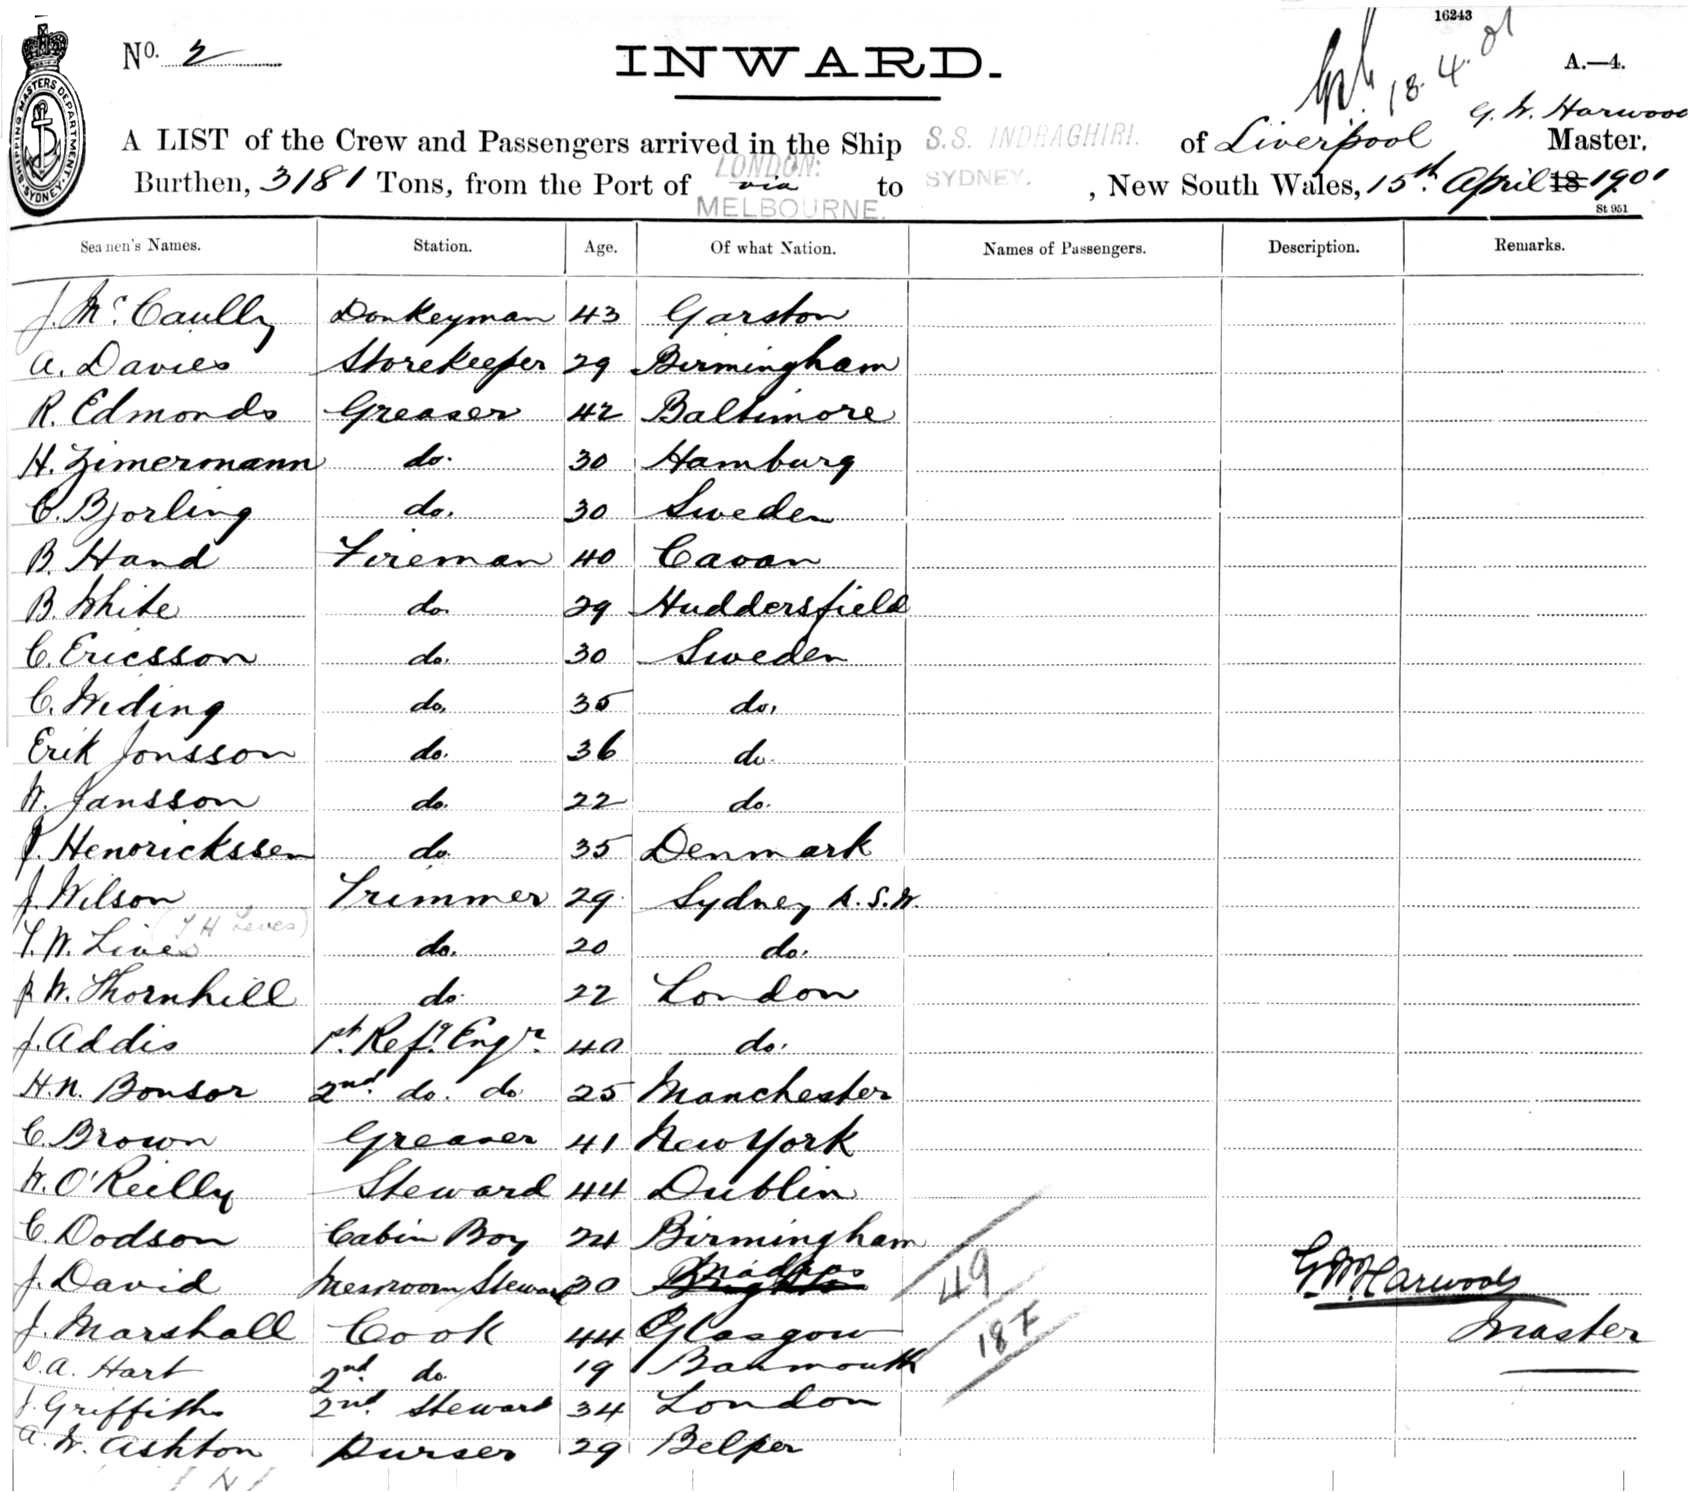 16243
No. 2
INWARD.
18.4.01
A.—4.
G. W. Harwood
A LIST of the Crew and Passengers arrived in the Ship S.S. INDRAGHIRI. of Liverpool Master.
Burthen, 3181 Tons, from the Port of LONDON: via MELBOURNE. to SYDNEY. , New South Wales, 15th April 18 1901
St 951
SHIPPING MASTERS DEPARTMENT SYDNEY N.S.W.
Seamen's Names. Station. Age. Of what Nation. Names of Passengers. Description. Remarks.
J. McCaully Donkeyman 43 Garston
A. Davies Storekeeper 29 Birmingham
R. Edmonds Greaser 42 Baltimore
H. Zimermann do. 30 Hamburg
C. Bjorling do. 30 Sweden
B. Hand Fireman 40 Cavan
B. White do. 29 Huddersfield
C. Ericsson do. 30 Sweden
C. Weding do. 35 do.
Erik Jonsson do. 36 do.
W. Jansson do. 22 do.
J. Henorickssen do. 35 Denmark
J. Wilson Trimmer 29 Sydney N.S.W.
(T H Leves)
T. W. Lives do. 20 do.
W. Thornhill do. 22 London
J. Addis 1st. Refg. Engr. 40 do.
H. N. Bonsor 2nd. do. do. 25 Manchester
C. Brown Greaser 41 New York
W. O'Reilly Steward 44 Dublin
C. Dodson Cabin Boy 24 Birmingham
J. David Messroom Steward 30 Brighton Madras
49
G. W. Harwood
J. Marshall Cook 44 Glasgow
18 F
Master
D. A. Hart 2nd. do. 19 Barmouth
J. Griffiths 2nd. Steward 34 London
A. W. Ashton Purser 29 Belper